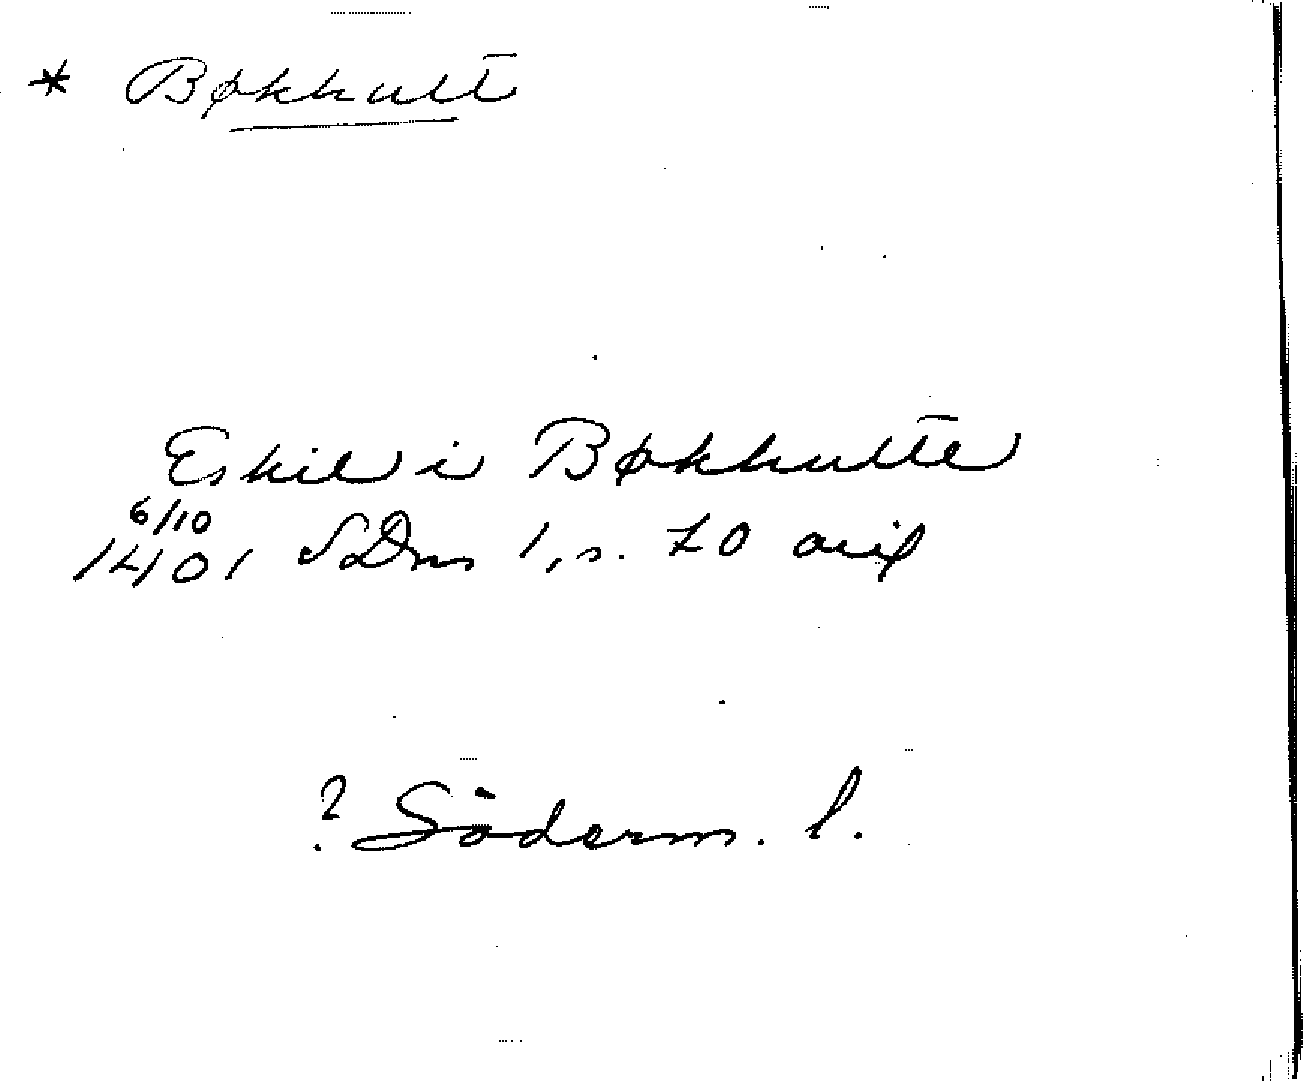 * Bøkhult
Eskil i Bøkhulte
6/10
1401 SDns 1, s. 20 avf
? Söderm. l.